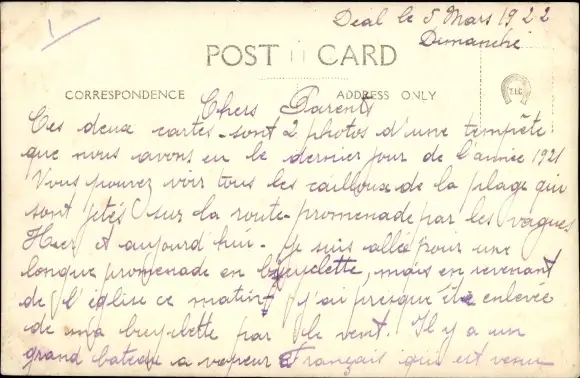 Deal le 5 Mars 1922
Dimanche
POST CARD
CORRESPONDENCE
ADDRESS ONLY
Chers Parents
Ces deux cartes sont 2 photos d'une tempête
que nous avons eu le dernier jour de l'année 1921
Vous pouvez voir tous les cailloux de la plage qui
sont jetés sur la route-promenade par les vagues
Hier et aujourd'hui - Je suis allée pour une
longue promenade en bicyclette, mais en revenant
de l'église ce matin j'ai presque été enlevée
de ma bicyclette par le vent. Il y a un
grand bateau a vapeur Français qui est venu